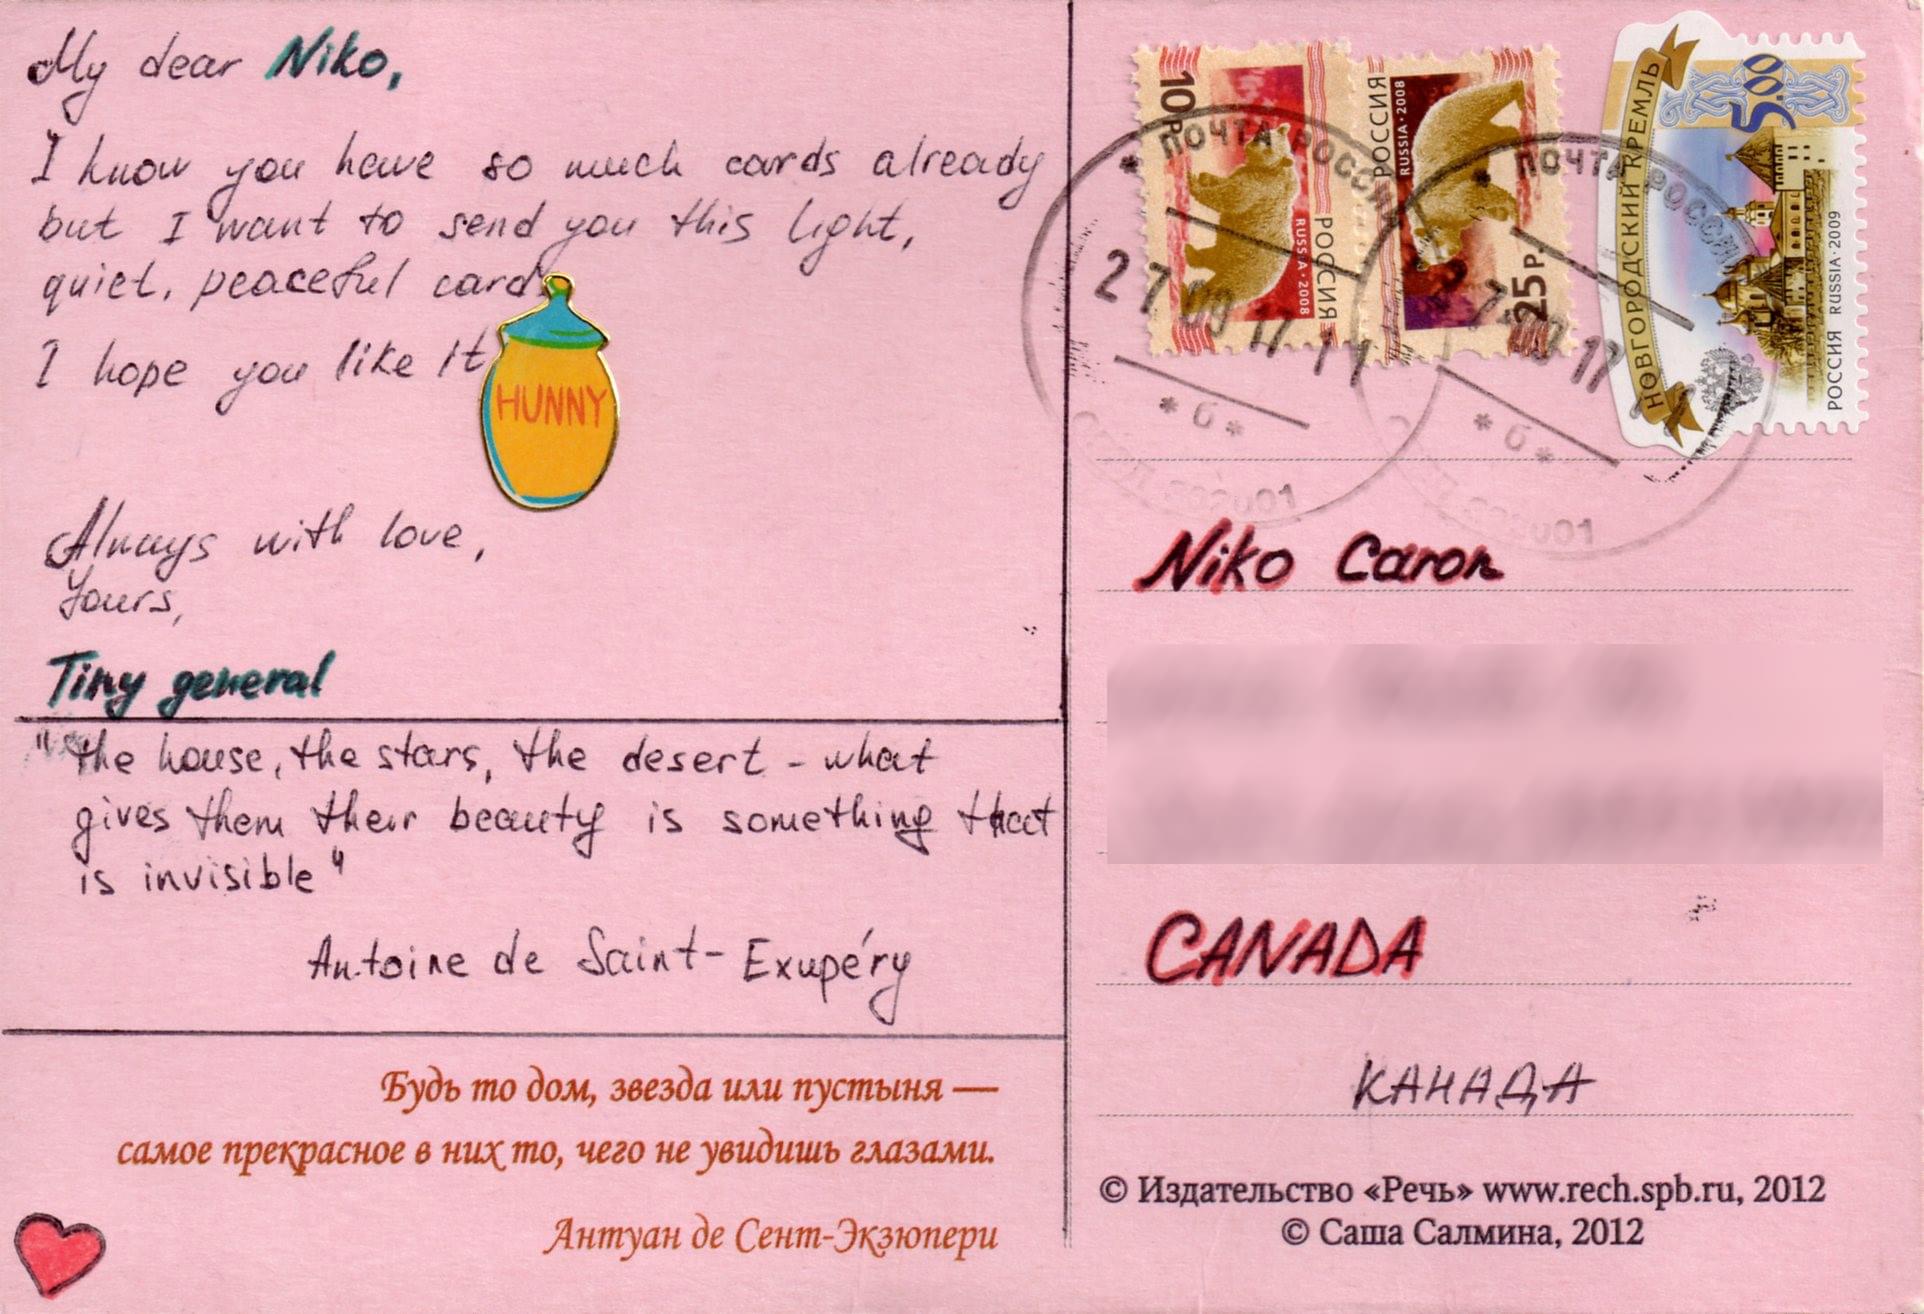 My dear Niko,
I know you have so much cards already
but I want to send you this light,
quiet, peaceful card.
I hope you like it
HUNNY
Always with love,
Yours,
Tiny general
"the house, the stars, the desert - what
gives them their beauty is something that
is invisible"
Antoine de Saint-Exupéry
Будь то дом, звезда или пустыня —
самое прекрасное в них то, чего не увидишь глазами.
Антуан де Сент-Экзюпери
10Р
РОССИЯ
RUSSIA • 2008
25Р
РОССИЯ
RUSSIA • 2008
5.00
НОВГОРОДСКИЙ КРЕМЛЬ
РОССИЯ RUSSIA • 2009
* ПОЧТА РОССИИ
27 09 17 11
* б *
* ПОЧТА РОССИИ
17
* б *
Niko Caron
CANADA
КАНАДА
© Издательство «Речь» www.rech.spb.ru, 2012
© Саша Салмина, 2012